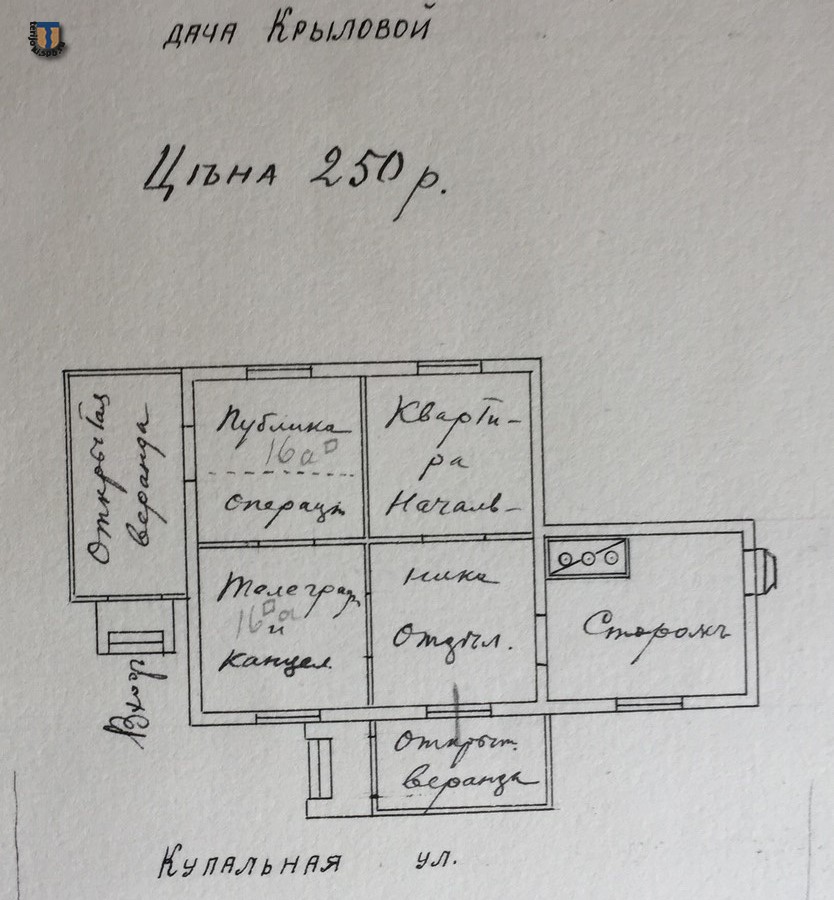 terijoki.spb.ru
дача Крыловой
Цѣна 250 р.
Открытая
веранда
Публика
16а
операц.
Кварти-
ра
Началь-
Телеграф.
16а
и
канцел.
ника
Отдѣл.
Сторожъ
Входъ
Открыт.
веранда
Купальная ул.